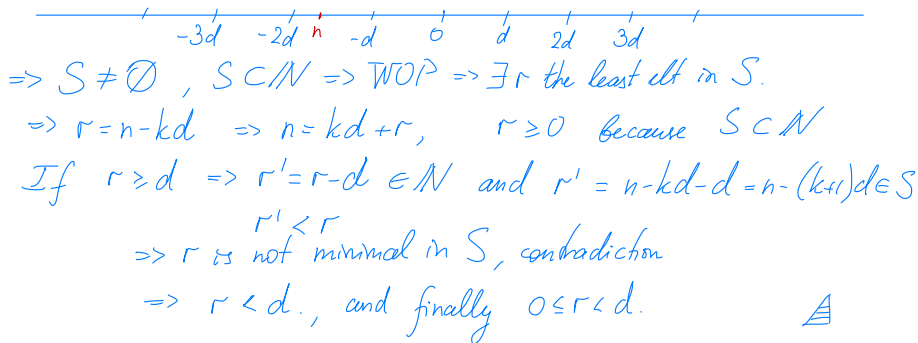 -3d -2d n -d 0 d 2d 3d
=> S ≠ ∅, S ⊂ ℕ => WOP => ∃ r the least elt in S.
=> r = n-kd => n = kd + r, r ≥ 0 because S ⊂ ℕ
If r ≥ d => r' = r-d ∈ ℕ and r' = n-kd-d = n-(k+1)d ∈ S
r' < r
=> r is not minimal in S, contradiction
=> r < d., and finally 0 ≤ r < d.